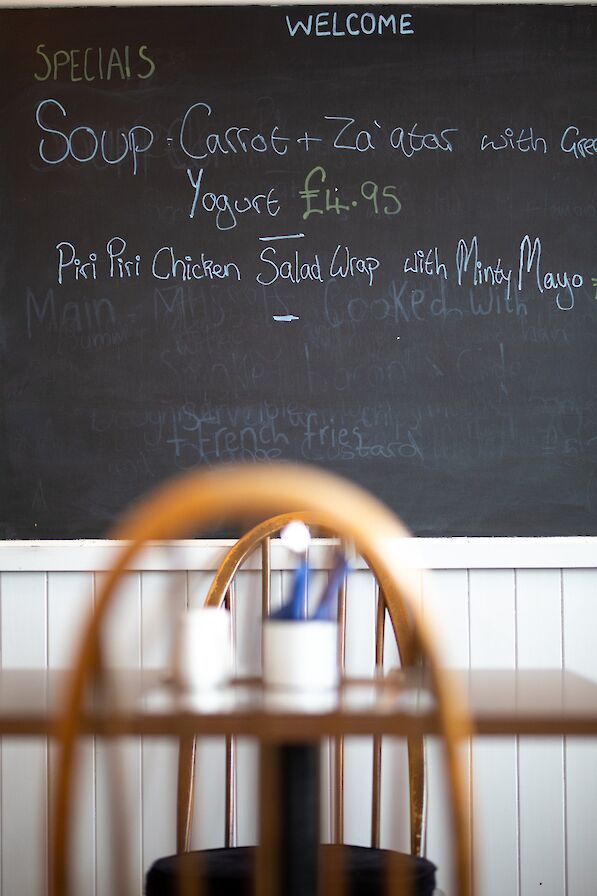 WELCOME
SPECIALS
Soup : Carrot + Za'atar with Gree
Yogurt £4.95
Piri Piri Chicken Salad Wrap with Minty Mayo
Main - Cooked with
+ French fries
Custard